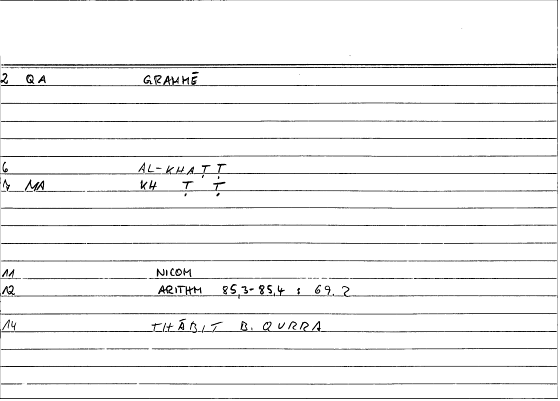 2 QA GRAMMĒ
6 AL-KHAṬṬ
7 MA KH Ṭ Ṭ
11 NICOM
12 ARITHM 85,3-85,4 : 69.2
14 THĀBIT B. QURRA